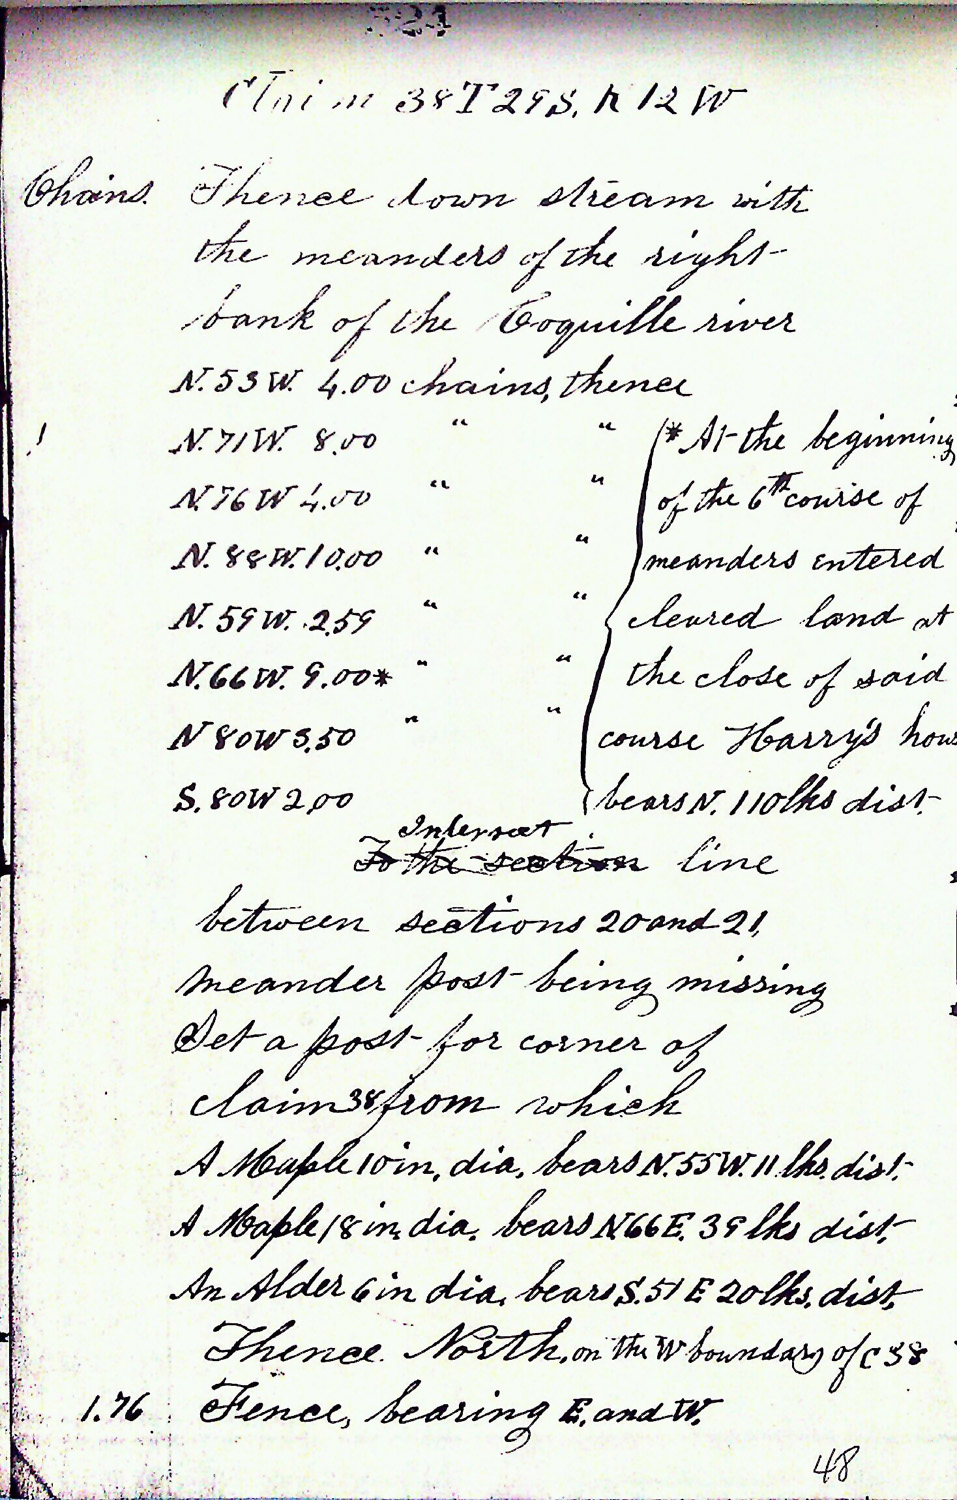 Claim 38 T 29 S. R 12 W
Chains. Thence down stream with
the meanders of the right
bank of the Coquille river
N. 53 W. 4.00 chains, thence
N. 71 W. 8.00 " "
N. 76 W 4.00 " "
N. 88 W. 10.00 " "
N. 59 W. 2.59 " "
N. 66 W. 9.00* " "
N 80 W 3.50 " "
S. 80 W 2.00
* At the beginning
of the 6th course of
meanders entered
cleared land at
the close of said
course Harry's hous
bears N. 110 lks dist.
Intersect
To the section line
between sections 20 and 21,
meander post being missing
Set a post for corner of
claim 38 from which
A Maple 10 in. dia. bears N. 55 W. 11 lks. dist.
A Maple 18 in. dia. bears N. 66 E. 39 lks dist.
An Alder 6 in dia. bears S. 51 E 20 lks. dist.
Thence North, on the W boundary of C 38
1.76 Fence, bearing E. and W.
48